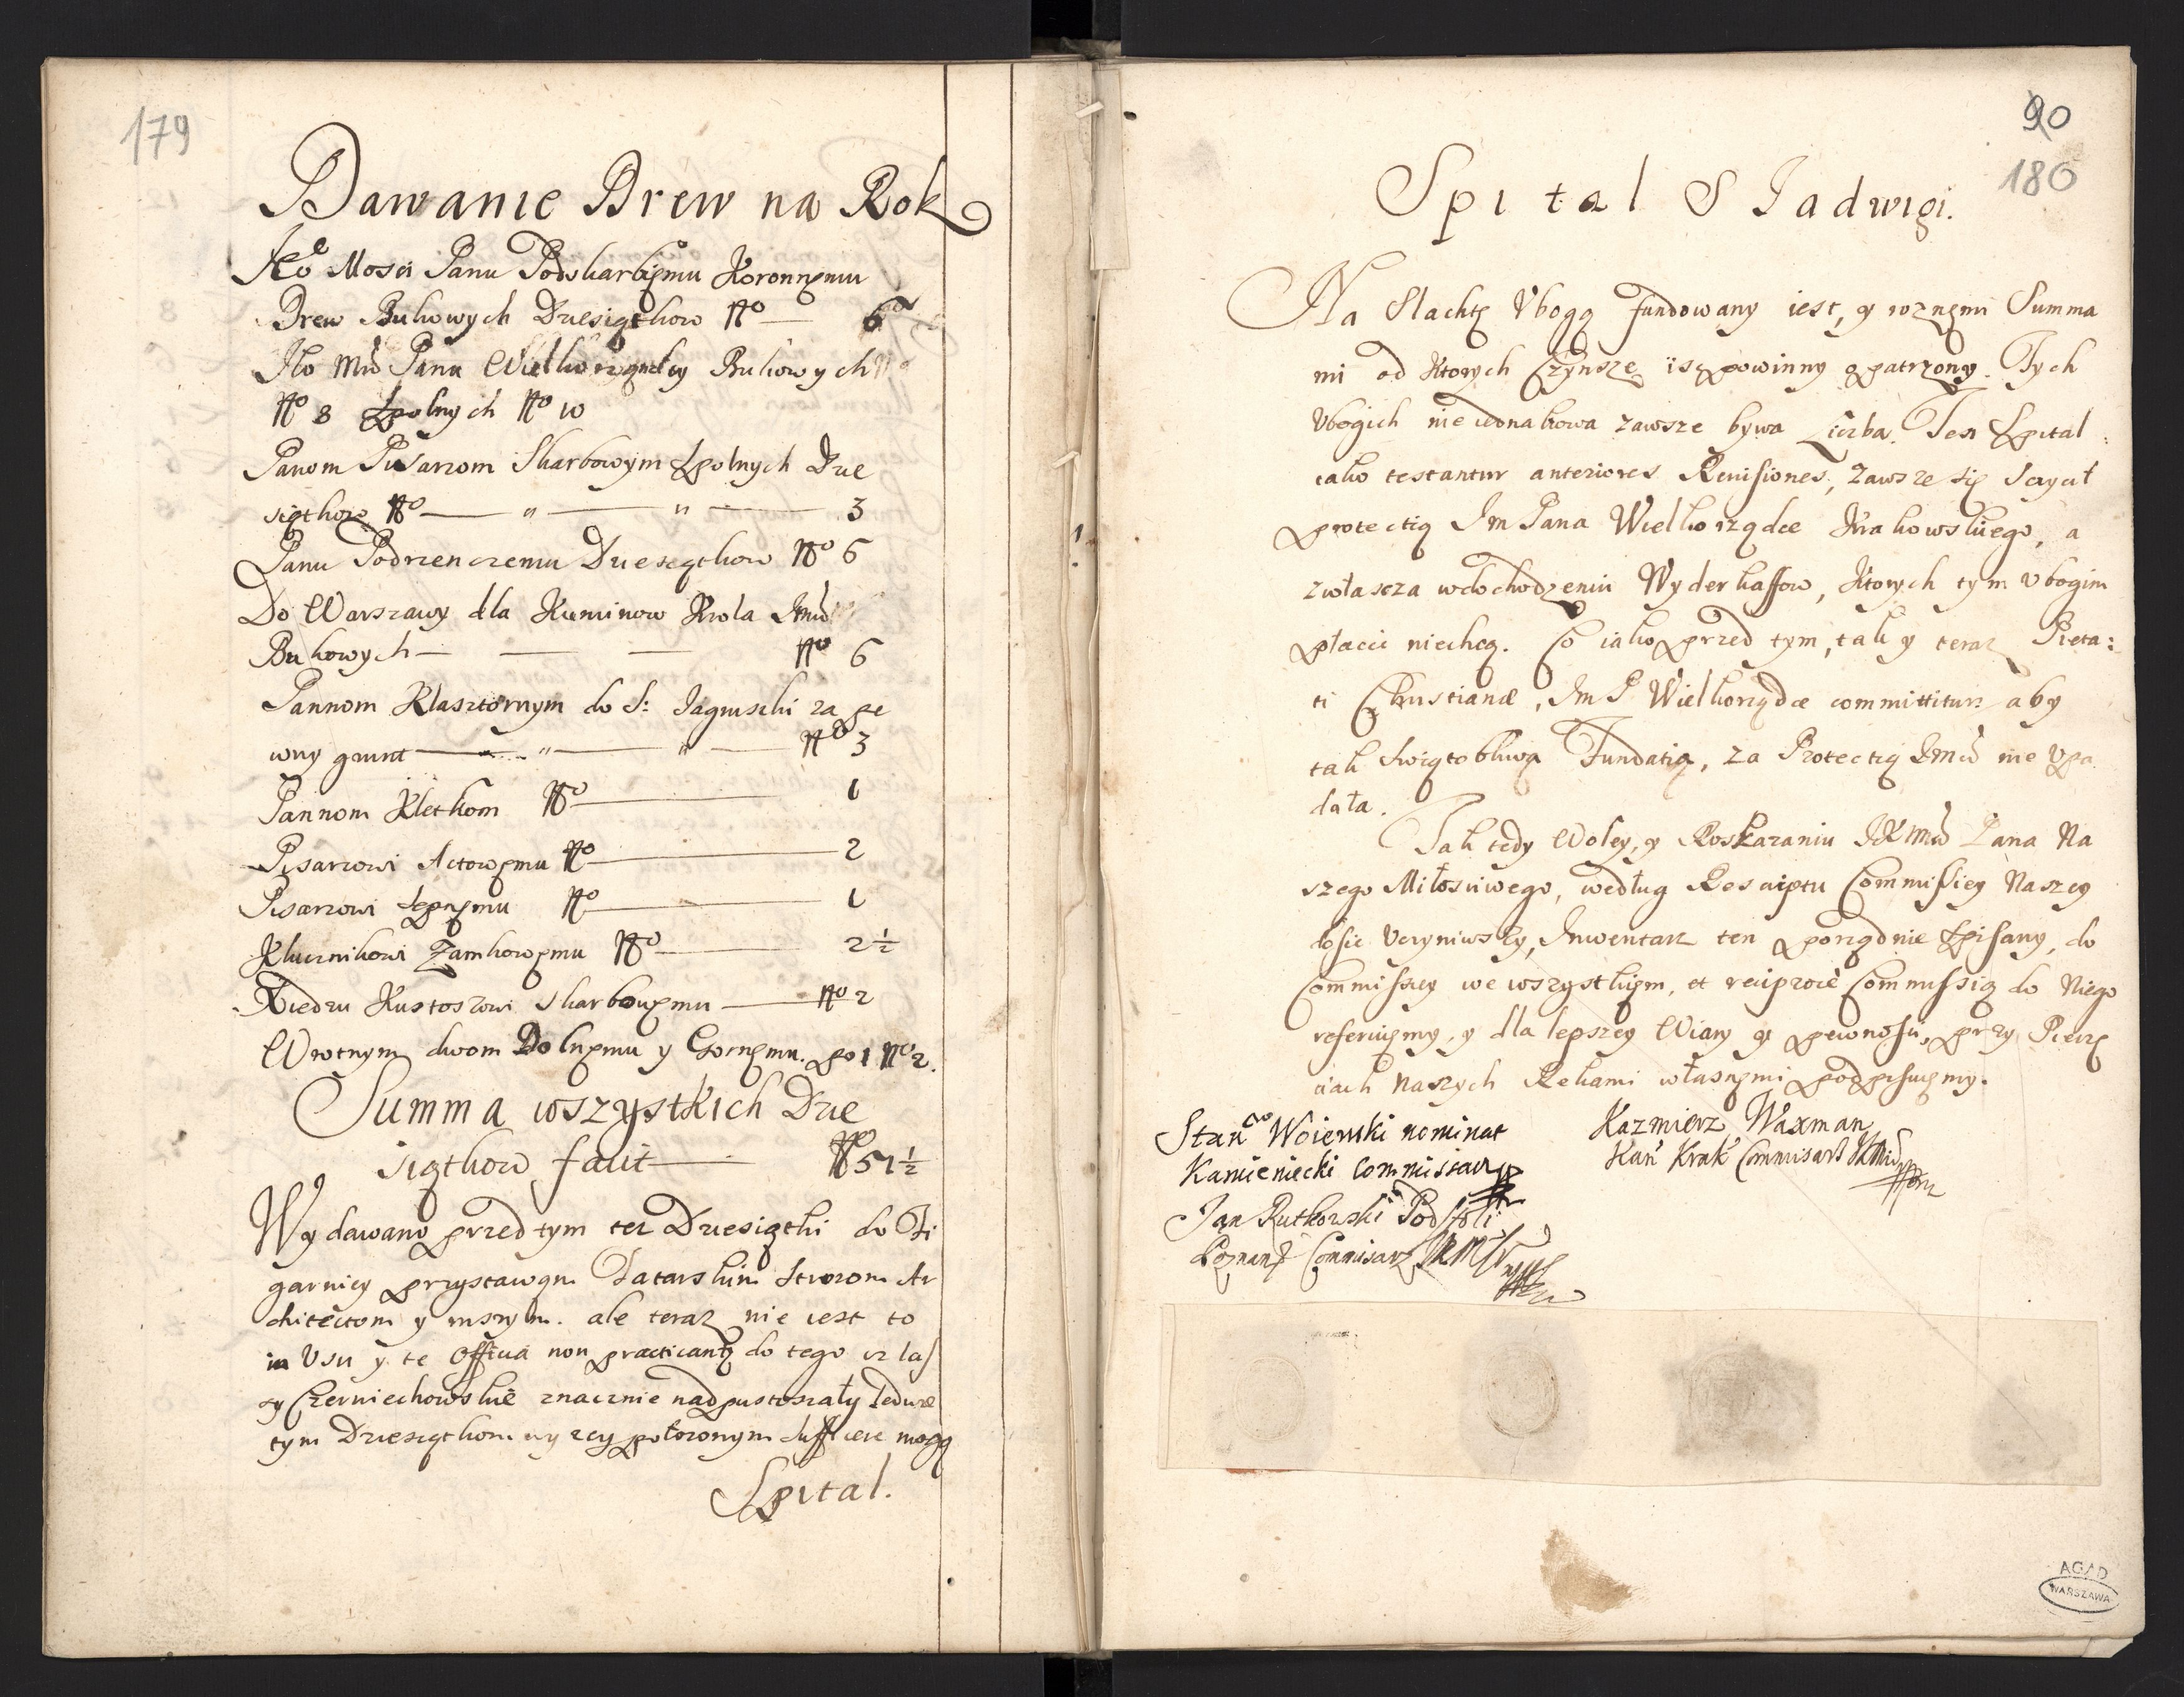 179
Dawanie Drew na Rok
Jeo Mosci Panu Podskarbięmu Koronnęmu
Drew Bukowych Dziesiątkow No — 6
Jko Mśći Panu Wielkorządcy Bukowych
No 8 Spolnych No 10
Panom Pisarzom Skarbowym Spolnych Dzie
siątkow No — " — " — 3
Panu Podrzenczemu Dziesiątkow No 6
Do Warszawy dla Kuminow Krola Jmći
Bukowych — — — No 6
Pannom Klasztornym do S: Jagnuszki za pe
wny grunt — " — " — No 3
Pannom Kletkom No — 1
Pisarzowi Actowęmu No — 2
Pisarzowi Sępnęmu No — 1
Klucznikowi Zamkowęmu No — 2 ½
Xiedzu Kustoszowi Skarbowęmu — No 2
Wrotnym dwom Dolnęmu y Gornęmu po 1 No 2.
Summa wszystkich Dzie
siątkow facit — No 51 ½
Wydawano przed tym tez Dziesiątki do Zi
garnicy przystawom Tatarskim Strozom Ar
chitectom y inszym. ale teraz nie iest to
in Usu y te Officia non practicantʒ do tego iz las
sy Czerniechowskie znacznie nadpustoszały ledwie
tym Dziesiątkom wyzey połozonym sufficere mogą
Spital.
90
180
Spital S Jadwigi.
Na Slachtę Ubogą fundowany iest, y roznęmi Summa
mi od ktorych Czynsze iść powinny opatrzony. Tych
Ubogich nie iednakowa zawsze bywa Liczba. Ten Spital
iako testantur anteriores Revisiones, zawsze się Sczycił
protectią Jm Pana Wielkorządce Krakowskiego, a
zwłascza w dochodzeniu Wyderkaffow, ktorych tym Ubogim
płacic niechcą. Co iako przed tym, tak y teraz Pieta:
ti Christianæ, Jm P Wielkorządce committitur aby
tak Swiątobliwa Fundatia, za Protectią Jmści nie Upa
dała.
Tak tedy Woley, y Roskazaniu JKMśći Pana Na
szego Miłosciwego, według Rescriptu Commissiey Naszey
dosic Uczyniwszy, Inwentarz ten porządnie Spisany, do
Commissiey we wszystkięm, et reciproce Commissią do Niego
referuięmy, y dla lepszey Wiary y pewnosci, przy Pieczę
ciach Naszych Rękami własnęmi podpisuięmy.
Stan Woienski nominat
Kamieniecki Commissarz
Jan Rutkowski Podstoli
Poznans Commisarz JKMsci
Kazmierz Waxman
Kan Krak Commisarz JKMsci
AGAD
WARSZAWA